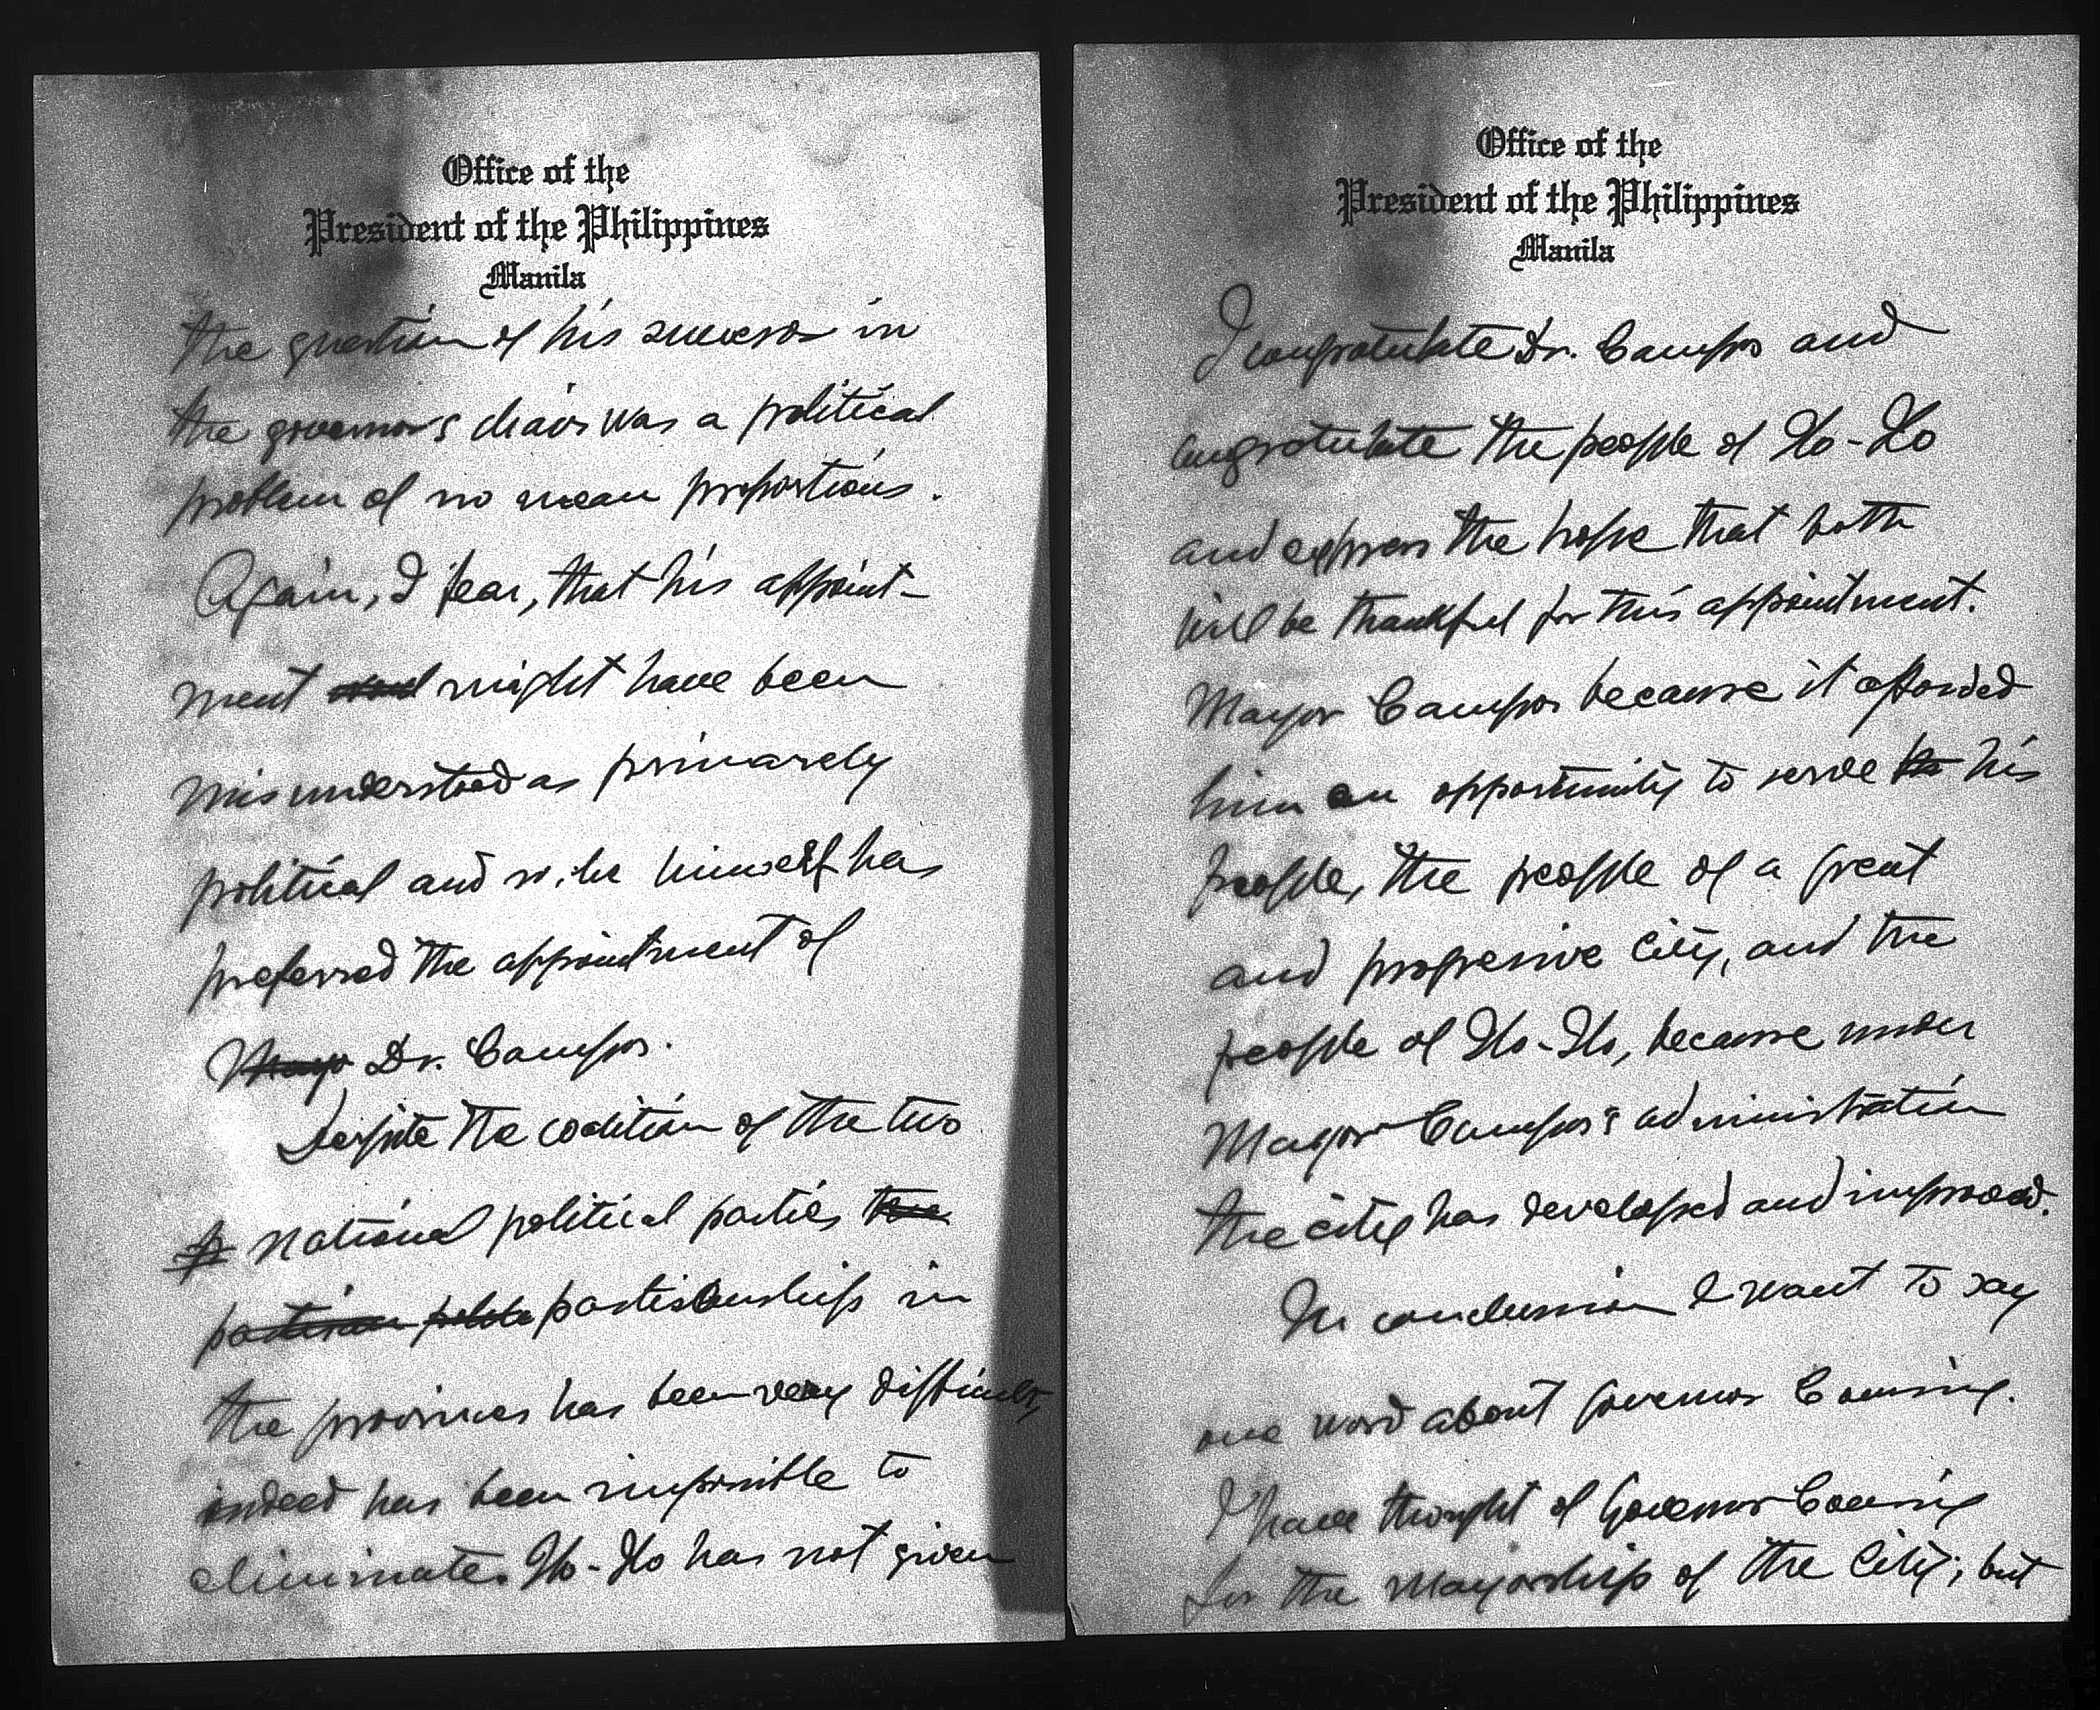 Office of the
President of the Philippines
Manila
the question of his successor in
the governor's chair was a political
problem of no mean proportions.
Again, I fear, that his appoint-
ment might have been
misunderstood as primarely
political and so, he himself has
preferred the appointment of
Mayo Dr. Campos.
Despite the coalition of the two
national political parties the
partisan partisanship in
the provinces has been very difficult,
indeed has been impossible to
eliminate. Ilo-Ilo has not given
Office of the
President of the Philippines
Manila
I congratulate Dr. Campos and
congratulate the people of Ilo-Ilo
and express the hope that both
will be thankful for this appointment.
Mayor Campos because it afforded
him an opportunity to serve the his
people, the people of a great
and progressive city, and the
people of Ilo-Ilo, because under
Mayor Campos's administration
the city has developed and improved.
In conclusion I want to say
one word about Governor Confesor.